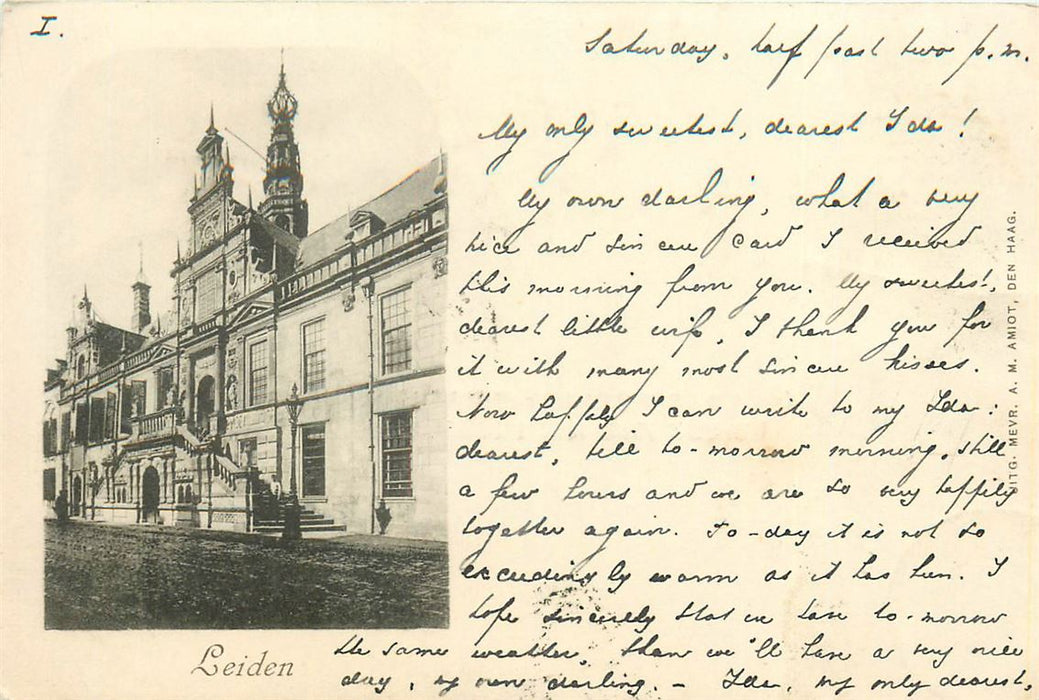 I.
Saturday, half past two p.m.
My only sweetest, dearest Ida!
My own darling, what a very
nice and sincere card I received
this morning from you. My sweetest,
dearest little wife, I thank you for
it with many most sincere kisses.
Now happily I can write to my Ida:
dearest, till to-morrow morning, still
a few hours and we are so very happily
together again. To-day it is not so
exceedingly warm as it has been. I
hope sincerely that we have to-morrow
the same weather, then we'll have a very nice
day, my own darling. - Ida, my only dearest,
Leiden
UITG. MEVR. A. M. AMIOT, DEN HAAG.